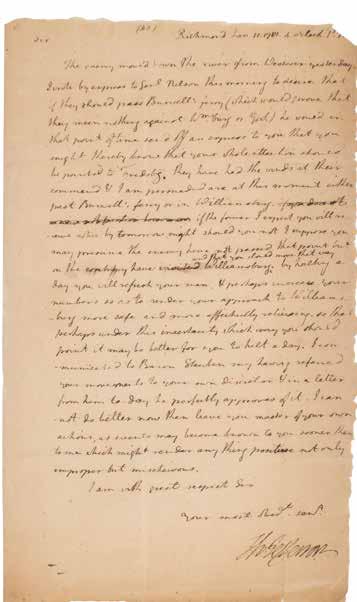 (40)
Sir Richmond Jan. 11. 1781. 4 o'clock P.M.
The enemy mov'd down the river from Westover yesterday
I wrote by express to Genl. Nelson this morning to desire that
if they should pass Burwell's ferry (which would prove that
they mean nothing against Wmsburg or York) he would in
that point of time send off an express to you that you
might thereby know that your whole attention should
be pointed to they have had the winds at their
command & I am persuaded are at this moment either
past Burwell's ferry or in Williamsburg.
if the former I expect you will re-
ceive advice by tomorrow night should you not I suppose you
may presume the enemy have not passed that point but
& that you should move that way
on the contrary have Williamsburg. by halting a
day you will refresh your men, & perhaps increase your
numbers so as to render your approach to William-
burg more safe and more effectually relieving. so that
perhaps under this incertainty which way you should
point it may be better for you to halt a day. I com-
municated to Baron Steuben my having referred
your movements to your own discretion & in a letter
from him to day he perfectly approves of it. I can
not do better now than leave you master of your own
actions, as events may become known to you sooner than
to me which might render any thing positive not only
improper but mischievous.
I am with great respect Sir
Your most obedt. servt.
Th: Jefferson